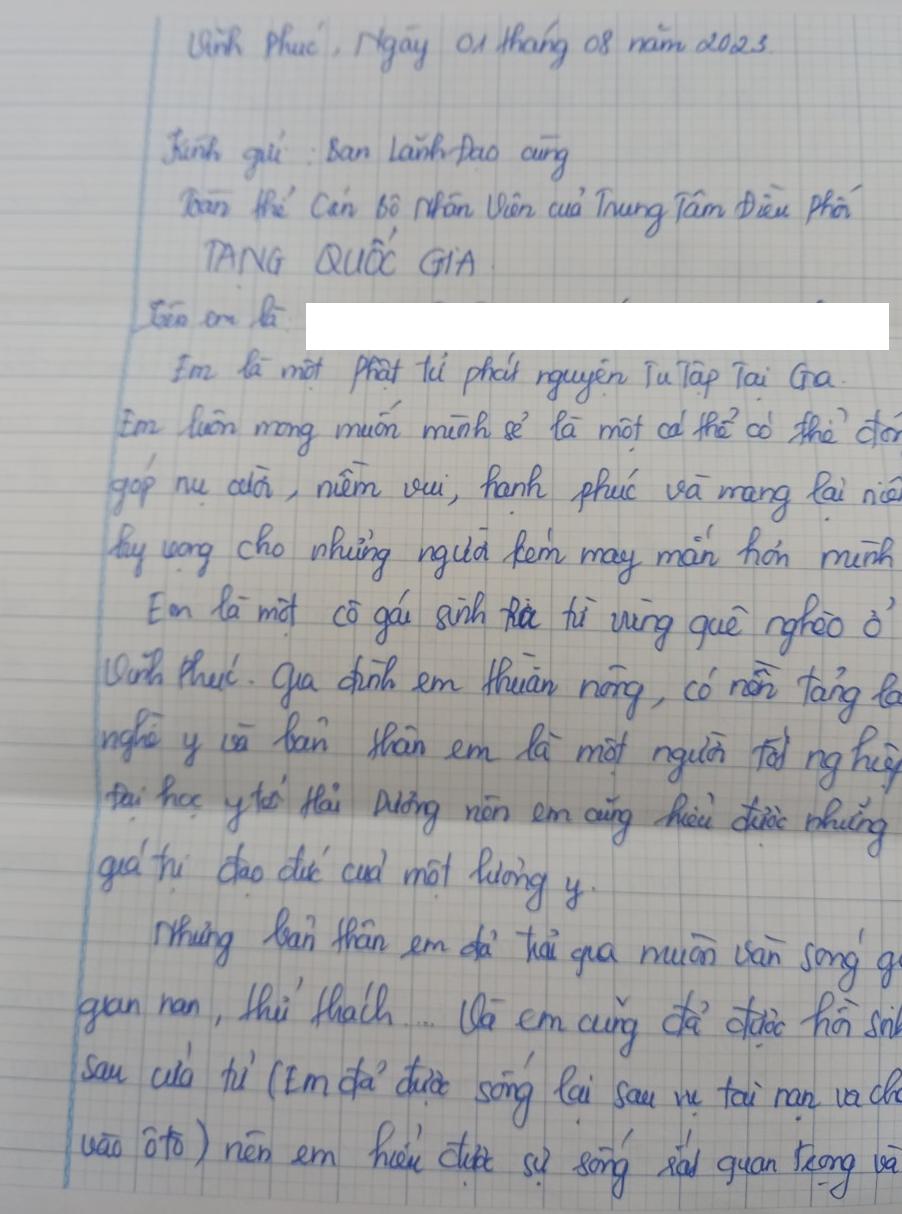 Vĩnh Phúc, Ngày 01 tháng 08 năm 2023.
Kính gửi : Ban Lãnh Đạo cùng
Toàn thể Cán Bộ Nhân Viên của Trung Tâm Điều Phối
TẠNG QUỐC GIA
Tên em là
Em là một Phật tử phát nguyện Tu Tập Tại Gia.
Em luôn mong muốn mình sẽ là một cá thể có thể
góp nụ cười, niềm vui, hạnh phúc và mang lại
hy vọng cho những người kém may mắn hơn mình
Em là một cô gái sinh ra từ vùng quê nghèo ở
Vĩnh Phúc. Gia đình em thuần nông, có nền tảng
nghề y và bản thân em là một người tốt
Đại học y tế Hải Dương nên em cũng hiểu được những
giá trị đạo đức của một lương y.
Nhưng bản thân em đã trải qua muôn vàn sóng
gian nan, thử thách... Và em cũng đã được hồi
sau cửa tử (Em đã được sống lại sau vụ tai nạn va
vào ôtô) nên em hiểu được sự sống rất quan trọng và